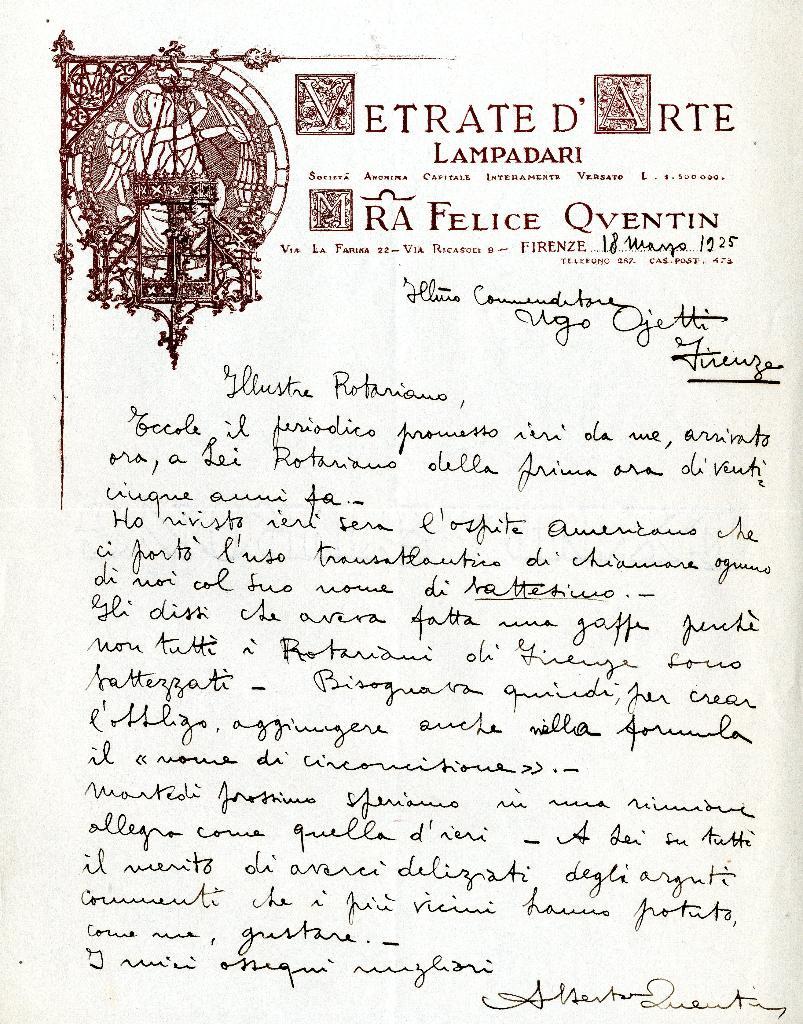 VETRATE D'ARTE
LAMPADARI
SOCIETÀ ANONIMA CAPITALE INTERAMENTE VERSATO L. 1.500000.
MRA FELICE QVENTIN
VIA LA FARINA 22 - VIA RICASOLI 9 - FIRENZE 18 Marzo 1925
TELEFONO 287. CAS. POST. 473
Illmo Commendatore
Ugo Ojetti
Firenze
Illustre Rotariano,
Eccole il periodico promesso ieri da me, arrivato
ora, a Lei Rotariano della prima ora di venti=
cinque anni fa.-
Ho rivisto ieri sera l'ospite americano che
ci portò l'uso transatlantico di chiamare ognuno
di noi col suo nome di battesimo.-
Gli dissi che aveva fatta una gaffe perchè
non tutti i Rotariani di Firenze sono
battezzati - Bisognava quindi, per crear
l'obbligo, aggiungere anche nella formula
il «nome di circoncisione».-
Martedì prossimo speriamo in una riunione
allegra come quella d'ieri - A Lei su tutti
il merito di averci deliziati degli arguti
commenti che i più vicini hanno potuto,
come me, gustare.-
I miei ossequi migliori
Alberto Quentin